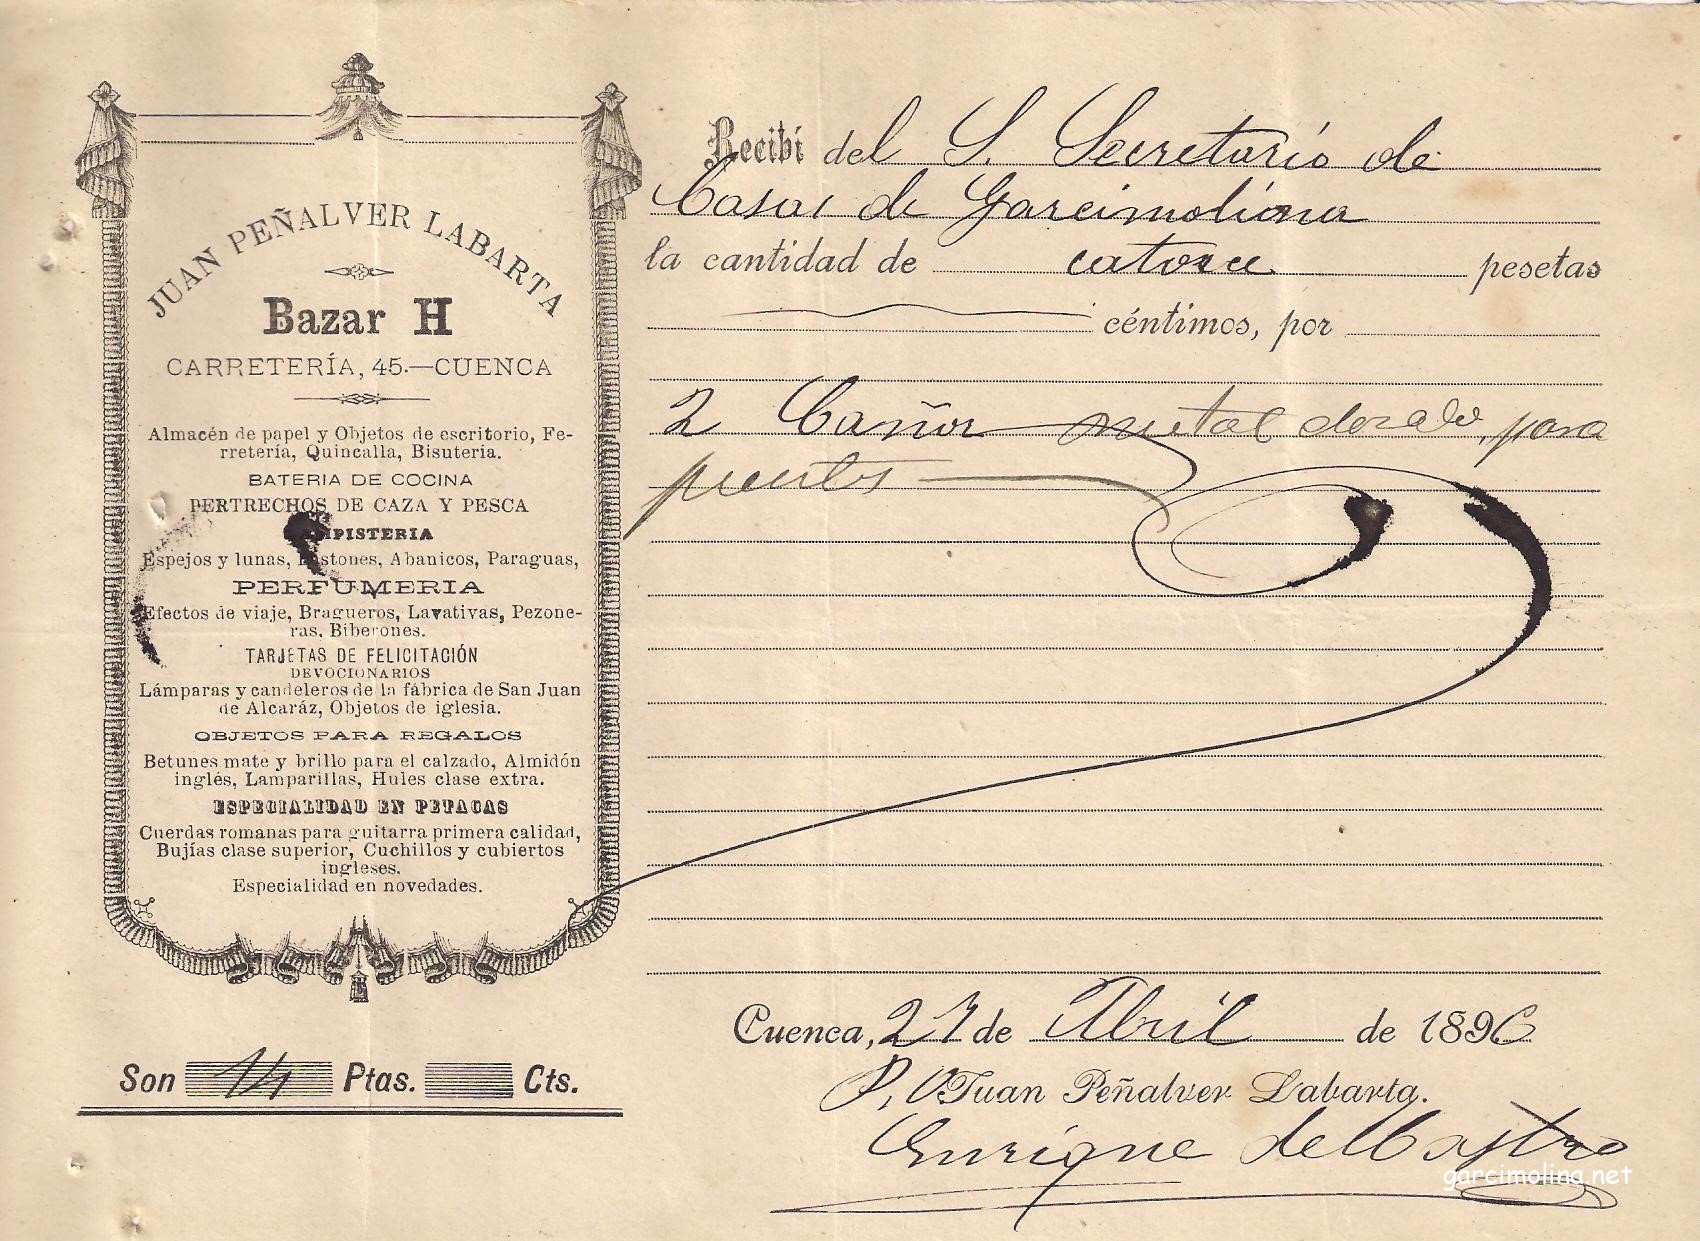 JUAN PEÑALVER LABARTA
Bazar H
CARRETERÍA, 45.—CUENCA
Almacén de papel y Objetos de escritorio, Fe-
rretería, Quincalla, Bisutería.
BATERIA DE COCINA
PERTRECHOS DE CAZA Y PESCA
PISTERIA
Espejos y lunas, Bastones, Abanicos, Paraguas,
PERFUMERIA
Efectos de viaje, Bragueros, Lavativas, Pezone-
ras, Biberones.
TARJETAS DE FELICITACIÓN
DEVOCIONARIOS
Lámparas y candeleros de la fábrica de San Juan
de Alcaráz, Objetos de iglesia.
OBJETOS PARA REGALOS
Betunes mate y brillo para el calzado, Almidón
inglés, Lamparillas, Hules clase extra.
ESPECIALIDAD EN PETACAS
Cuerdas romanas para guitarra primera calidad,
Bujías clase superior, Cuchillos y cubiertos
ingleses.
Especialidad en novedades.
Son 14 Ptas. Cts.
Recibí del S. Secretario de
Casas de Garcimolina
la cantidad de catorce pesetas
céntimos, por
2 metal dorado, para
Cuenca, 27 de Abril de 1896
P, O Juan Peñalver Labarta.
Enrique del Castro
garcimolina.net